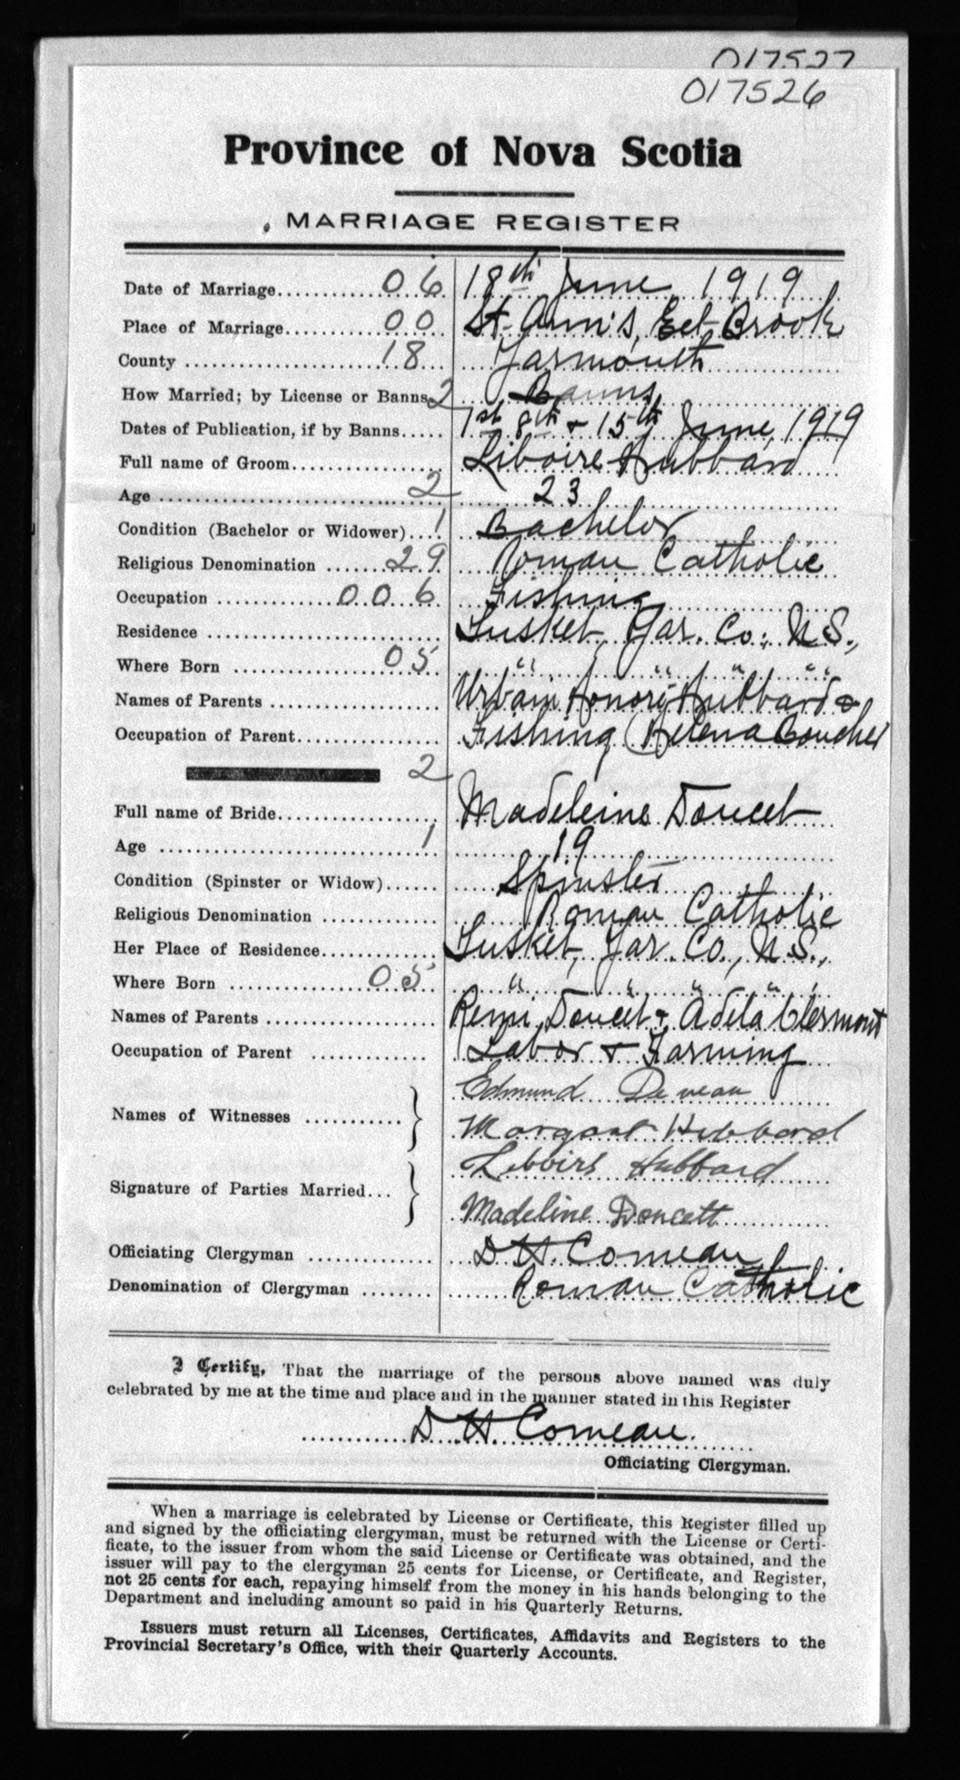 017527
017526
Province of Nova Scotia
MARRIAGE REGISTER
Date of Marriage 06 18th June 1919
Place of Marriage 00 St. Ann's, Eel Brook
County 18 Yarmouth
How Married; by License or Banns 2 Banns
Dates of Publication, if by Banns 1st 8th & 15th June 1919
Full name of Groom Liboire Hubbard
Age 2 23
Condition (Bachelor or Widower) 1 Bachelor
Religious Denomination 29 Roman Catholic
Occupation 006 Fishing
Residence Tusket, Yar. Co., N.S.,
Where Born 05 " " " "
Names of Parents Urbain Honoré Hubbard &
Occupation of Parent Fishing (Helena Boucher
2
Full name of Bride Madeleine Doucet
Age 1 19
Condition (Spinster or Widow) Spinster
Religious Denomination Roman Catholic
Her Place of Residence Tusket, Yar. Co., N.S.,
Where Born 05 " " " " "
Names of Parents Remi Doucet & Adela Clermont
Occupation of Parent Labor & Farming
Names of Witnesses } Edmund Deveau
Margaret Hubbard
Signature of Parties Married } Liboire Hubbard
Madeline Doucett
Officiating Clergyman D H. Comeau
Denomination of Clergyman Roman Catholic
I Certify, That the marriage of the persons above named was duly
celebrated by me at the time and place and in the manner stated in this Register
D H Comeau.
Officiating Clergyman.
When a marriage is celebrated by License or Certificate, this Register filled up
and signed by the officiating clergyman, must be returned with the License or Certi-
ficate, to the issuer from whom the said License or Certificate was obtained, and the
issuer will pay to the clergyman 25 cents for License, or Certificate, and Register,
not 25 cents for each, repaying himself from the money in his hands belonging to the
Department and including amount so paid in his Quarterly Returns.
Issuers must return all Licenses, Certificates, Affidavits and Registers to the
Provincial Secretary's Office, with their Quarterly Accounts.